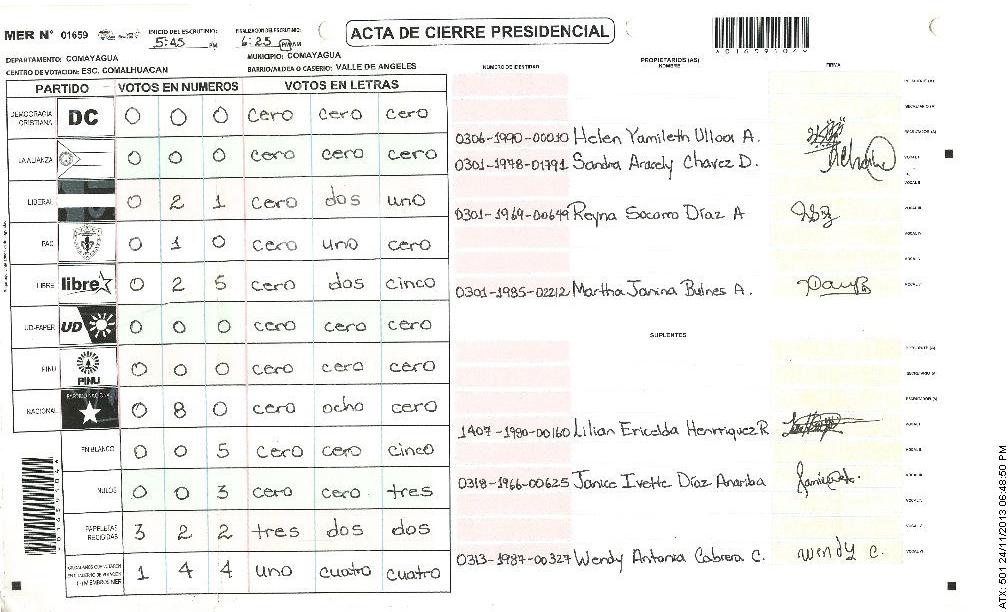 MER N° 01659
INICIO DEL ESCRUTINIO:
5:45 PM
FINALIZACION DEL ESCRUTINIO:
6:25 PM AM
ACTA DE CIERRE PRESIDENCIAL
DEPARTAMENTO: COMAYAGUA
MUNICIPIO: COMAYAGUA
CENTRO DE VOTACION: ESC. COMALHUACAN
BARRIO/ALDEA O CASERIO: VALLE DE ANGELES
PARTIDO VOTOS EN NUMEROS VOTOS EN LETRAS
DEMOCRACIA CRISTIANA DC 0 0 0 cero cero cero
LA ALIANZA 0 0 0 cero cero cero
LIBERAL 0 2 1 cero dos uno
PAC 0 1 0 cero uno cero
LIBRE libre 0 2 5 cero dos cinco
UD-FAPER UD 0 0 0 cero cero cero
PINU PINU 0 0 0 cero cero cero
NACIONAL PARTIDO NACIONAL 0 8 0 cero ocho cero
EN BLANCO 0 0 5 cero cero cinco
NULOS 0 0 3 cero cero tres
PAPELETAS RECIBIDAS 3 2 2 tres dos dos
1 4 4 uno cuatro cuatro
NUMERO DE IDENTIDAD PROPIETARIOS (AS) NOMBRE FIRMA
0306-1990-00010 Helen Yamileth Ulloa A.
0301-1978-01791 Sandra Aracely Chavez D.
0301-1969-00649 Reyna Socorro Díaz A
0301-1985-02212 Martha Janina Bulnes A.
SUPLENTES
1407-1980-00160 Lilian Ericelda Henrriquez R
0318-1966-00625 Janice Ivette Díaz Anariba
0313-1987-00327 Wendy Antonia Cabrera C. wendy c.
ATX: 501 24/11/2013 06:48:50 PM